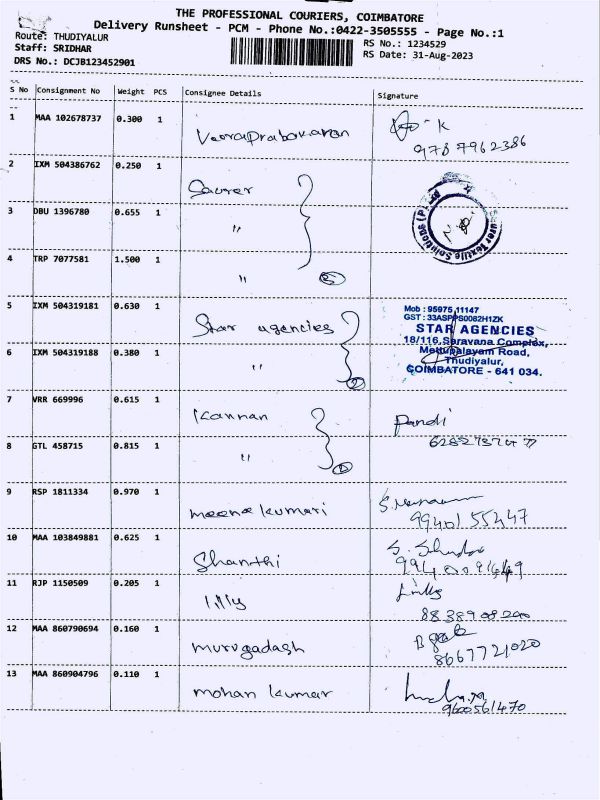 THE PROFESSIONAL COURIERS, COIMBATORE
Delivery Runsheet - PCM - Phone No.:0422-3505555 - Page No.:1
Route: THUDIYALUR
RS No.: 1234529
Staff: SRIDHAR
RS Date: 31-Aug-2023
DRS No.: DCJB123452901
S No Consignment No Weight PCS Consignee Details Signature
1 MAA 102678737 0.300 1 Veeraprabakaran
9787962386
2 IXM 504386762 0.250 1 Saurer
3 DBU 1396780 0.655 1 "
Saurer Textile Solutions (P)
4 TRP 7077581 1.500 1 "
5 IXM 504319181 0.630 1 Star agencies
Mob : 95975 11147
GST : 33ASPPS0082H1ZK
STAR AGENCIES
18/116, Saravana Complex,
Mettupalayam Road,
Thudiyalur,
COIMBATORE - 641 034.
6 IXM 504319188 0.380 1 " 2
7 VRR 669996 0.615 1 Kannan Pandi
8 GTL 458715 0.815 1 "
9 RSP 1811334 0.970 1 meena kumari
99401 55247
10 MAA 103849881 0.625 1 Shanthi
11 RJP 1150509 0.205 1 lilly
12 MAA 860790694 0.160 1 murugadash
8667721020
13 MAA 860904796 0.110 1 mohan kumar
9600561470